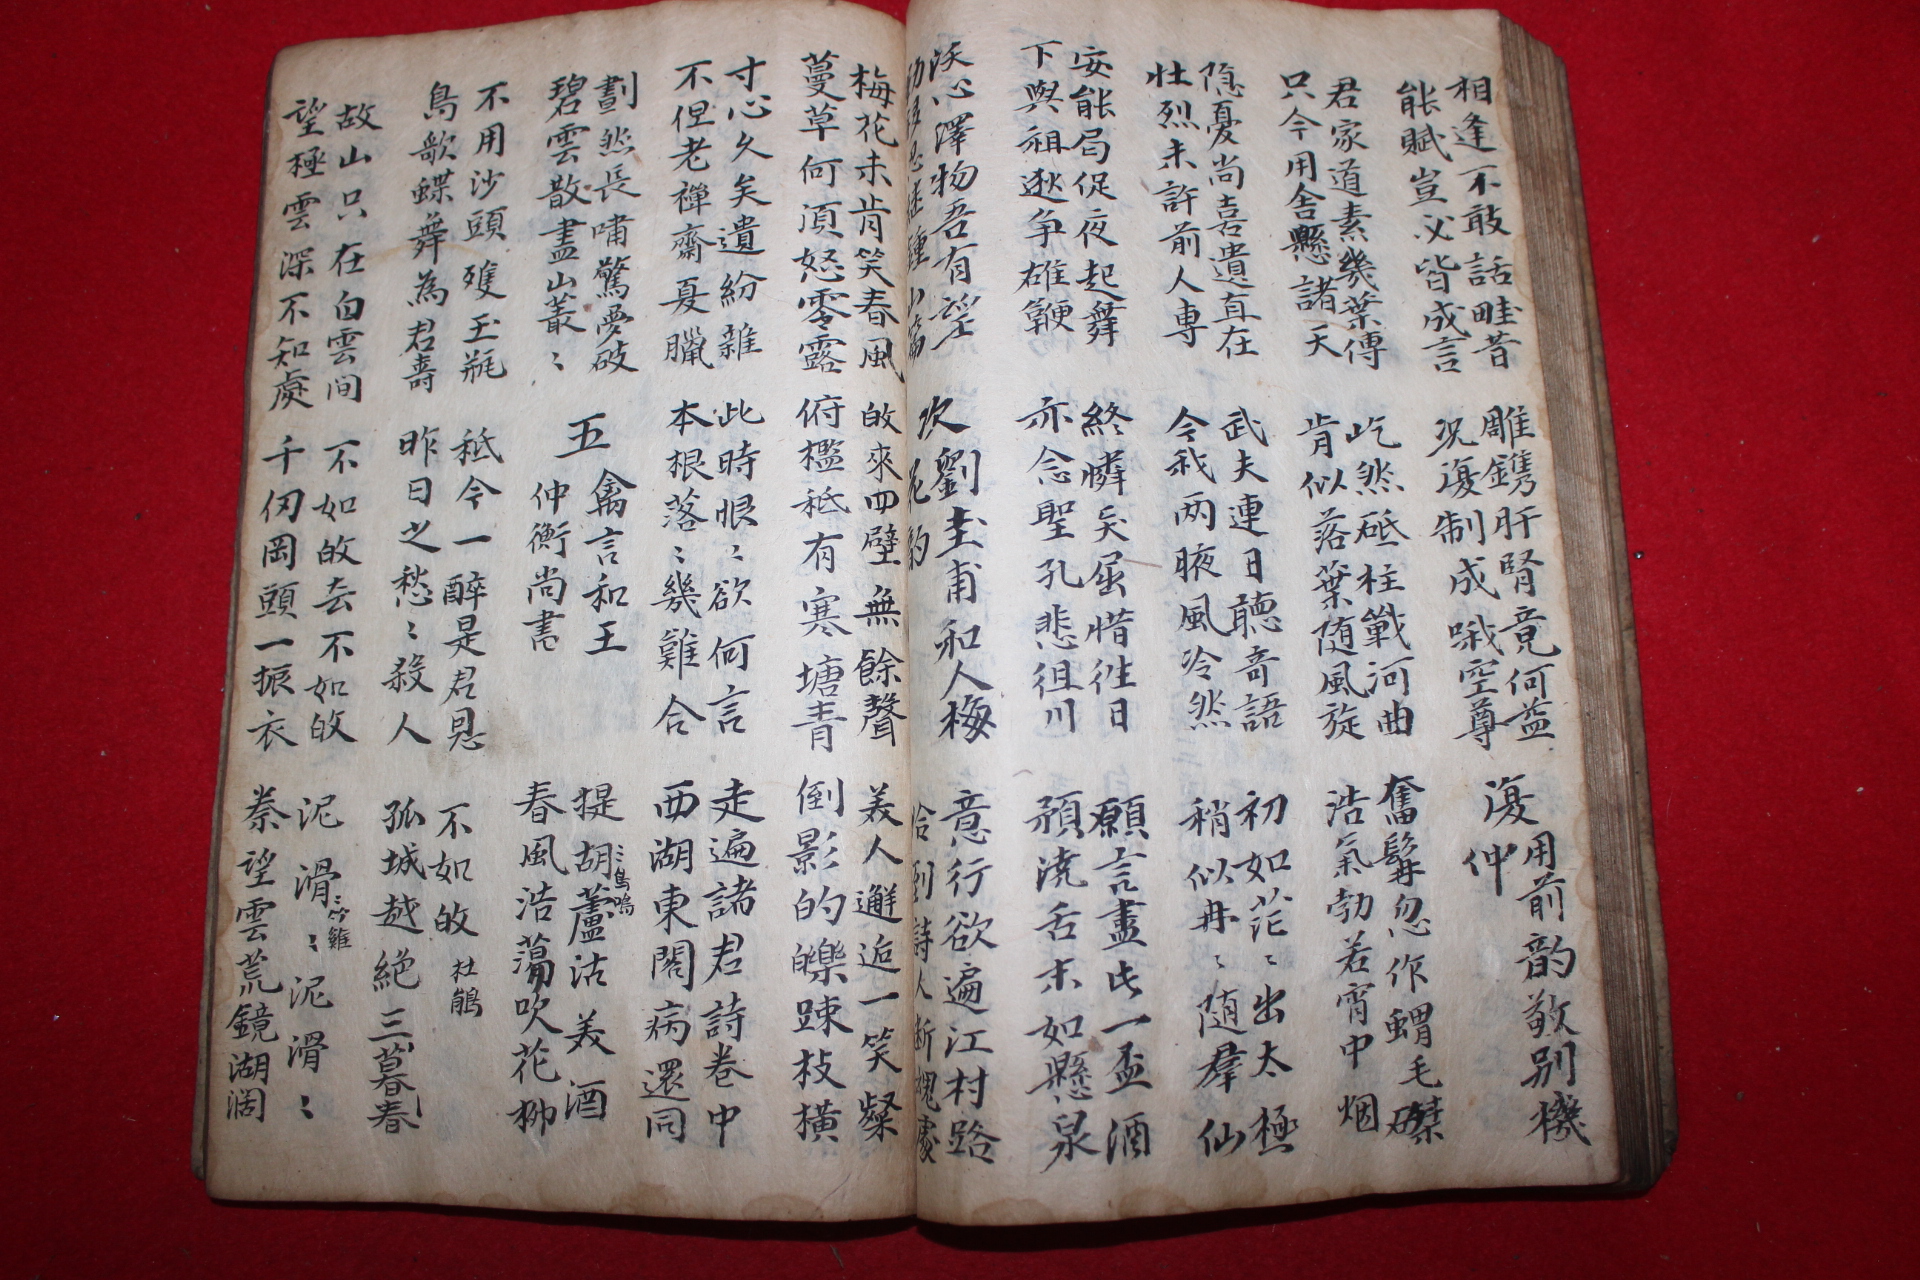 相逢不敢話疇昔
能賦豈必皆成言
雕鐫肝腎竟何益
況復制成哦空尊
復用前韵敬別機
仲
君家道素幾葉傳
只今用舍懸諸天
屹然砥柱戰河曲
肯似落葉随風旋
奮髯忽作蝟毛磔
浩氣勃若霄中烟
隐憂尚喜遺直在
壯烈未許前人專
武夫連日聽奇語
令我两腋風泠然
初如茫〻出太極
稍似冉〻随羣仙
安能局促夜起舞
下與祖逖争雄鞭
終憐
屈惜徃日
亦念聖孔悲徂川
願言盡此一盃酒
預澆舌本如懸泉
沃心澤物吾有望
種小篇
次劉圭甫和人梅
花韵
意行欲遍江村路
恰到詩人断魂處
梅花未肯笑春風
蔓草何須怒零露
故來四壁無餘聲
俯檻秪有寒塘青
美人邂逅一笑粲
倒影的皪踈枝橫
寸心久矣遺紛雜
不但老禪齋夏臘
此時眼〻欲何言
本根落〻幾難合
走遍諸君詩卷中
西湖東閣病還同
劃然長嘯驚夢破
碧雲散盡山叢〻
五禽言和王
仲衡尚書
提胡蘆沽美酒
春風浩蕩吹花柳
不用沙頭雙玉瓶
鳥歌蝶舞為君壽
秪今一醉是君恩
昨日之愁〻殺人
不如故 杜鵑
孤城越絶三暮春
故山只在白雲间
望極雲深不知處
不如故去不如故
千仞岡頭一振衣
泥滑〻泥滑〻
秦望雲荒鏡湖濶